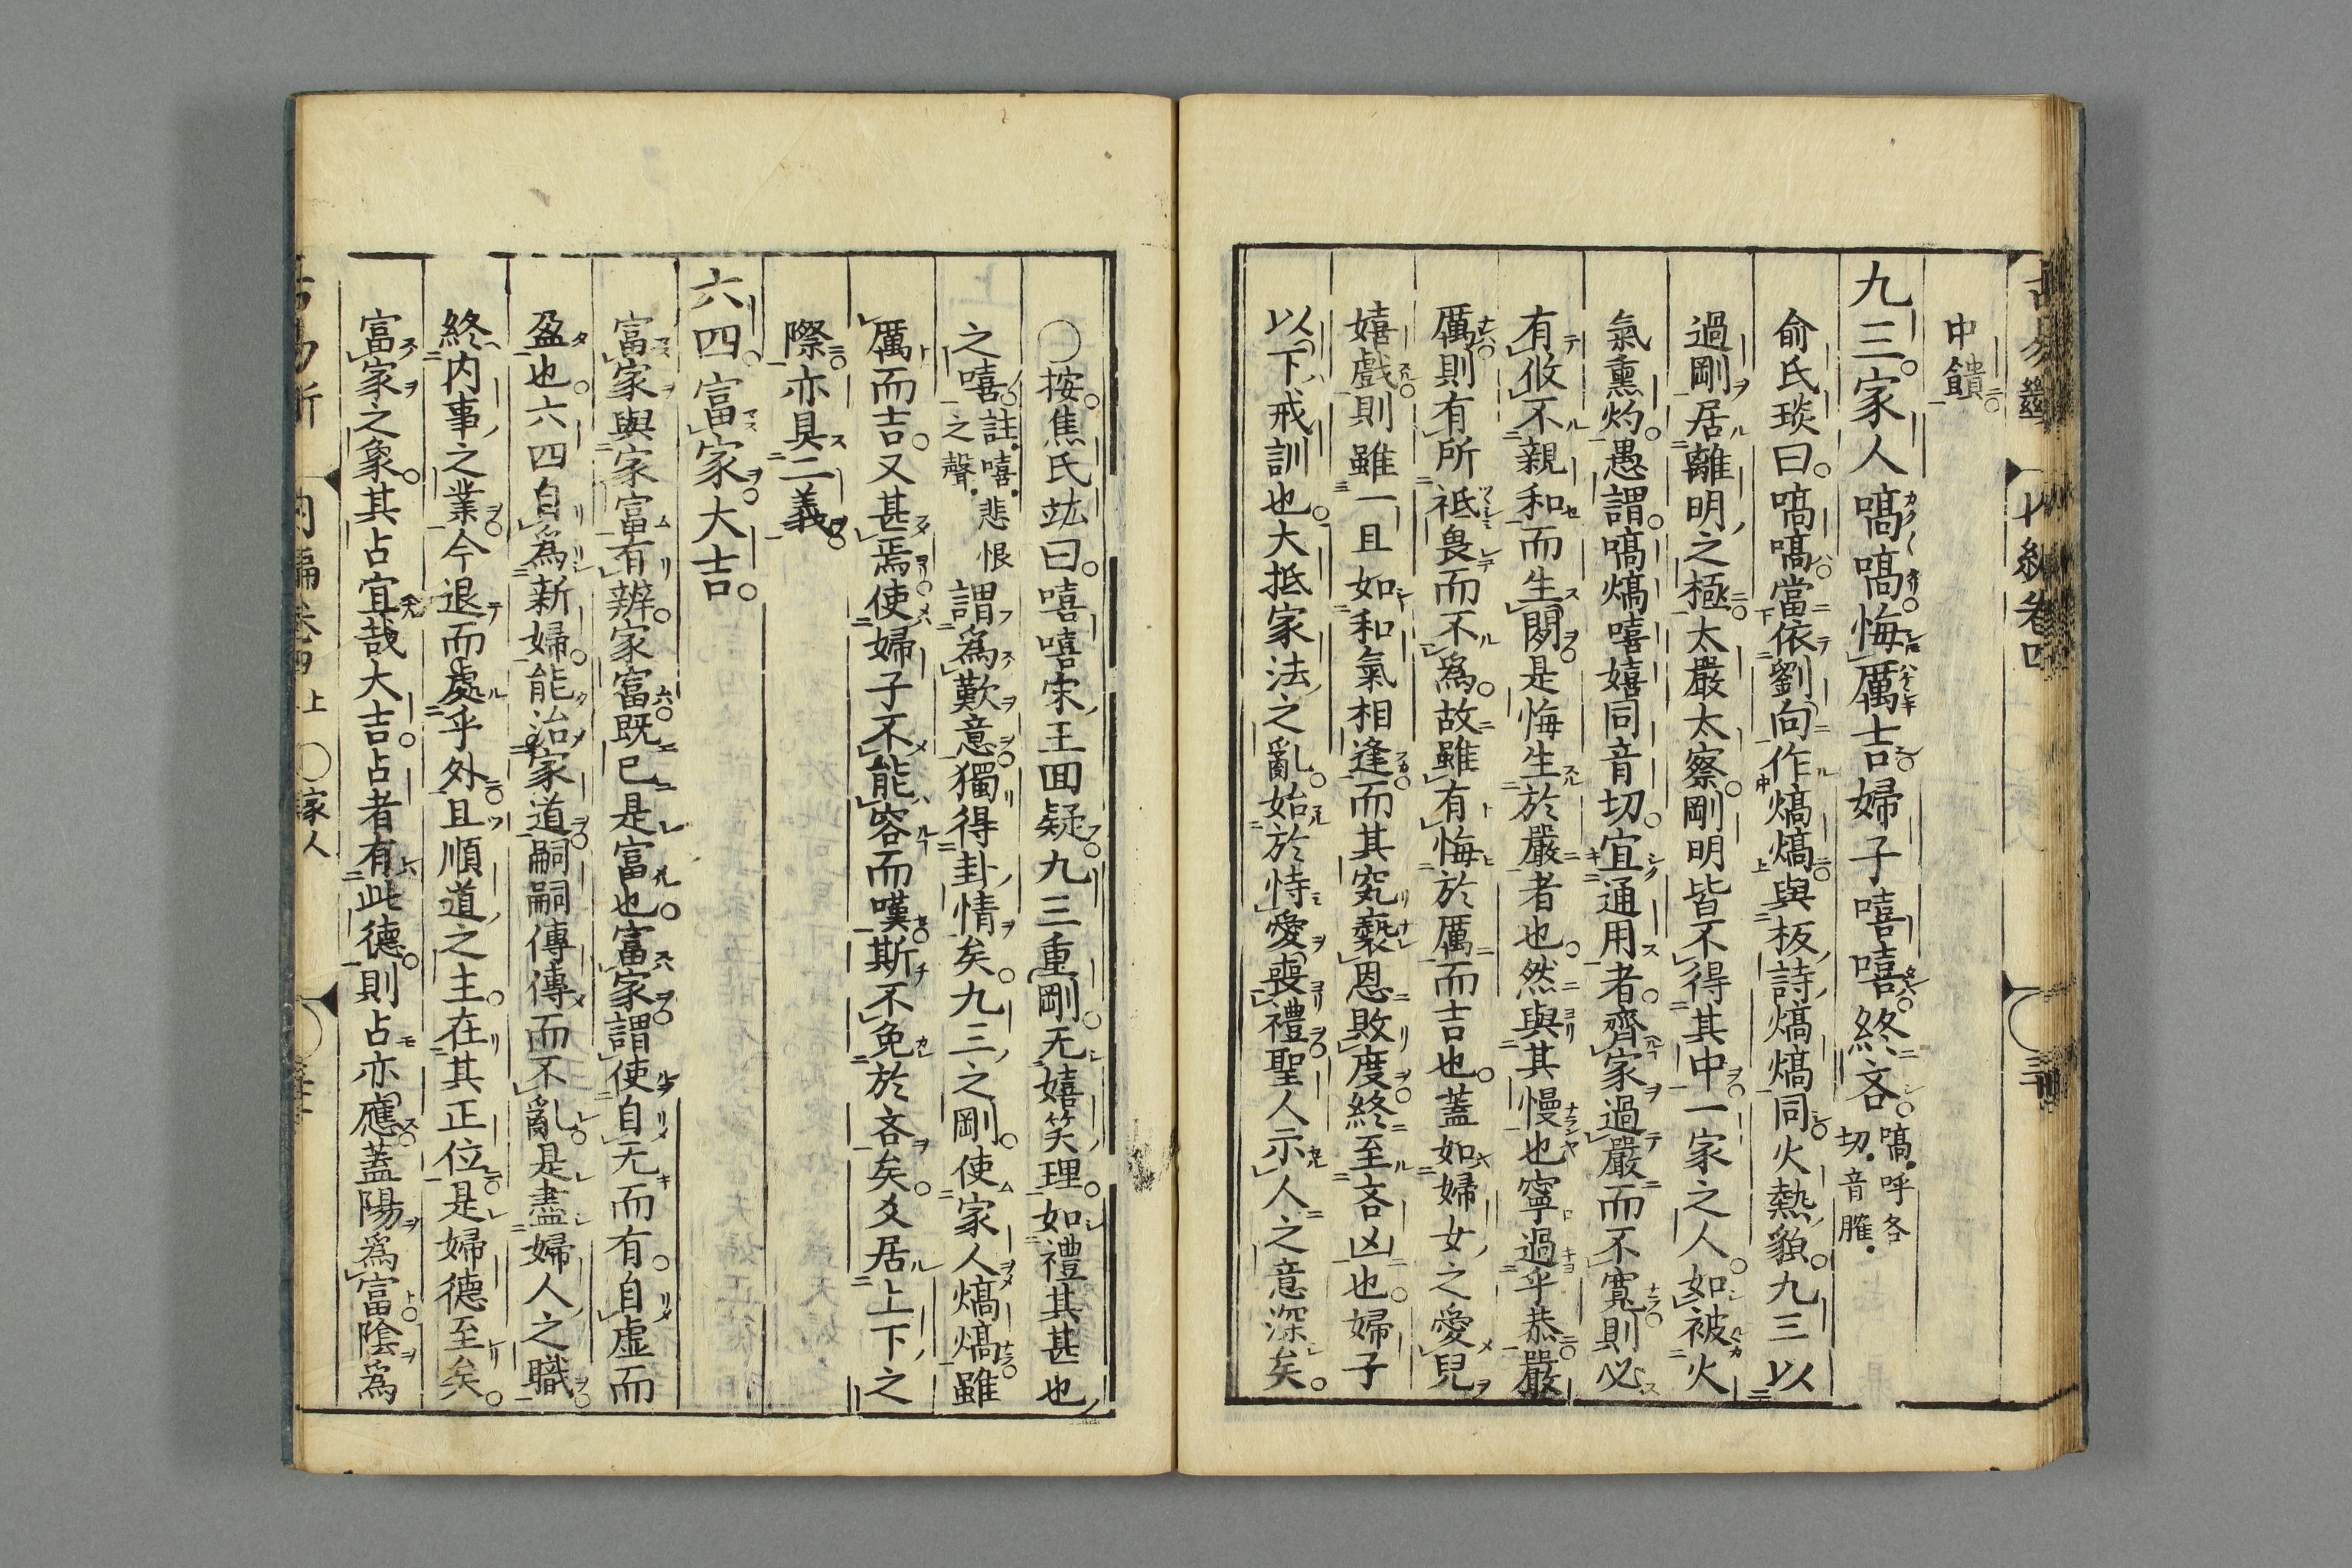 中饋
九三。家人嗃嗃。悔厲吉。婦子嘻嘻。終吝。嗃。呼各切。音臛。
俞氏琰曰。嗃嗃當依劉向作熇熇。與板詩熇熇同。火熱貌。九三以
過剛居離明之極。太嚴太察。剛明皆不得其中。一家之人。如被火
氣熏灼。愚謂。嗃熇嘻嬉同音切。宜通用者。齊家過嚴而不寬。則必
有攸不親和而生鬩。是悔生於嚴者也。然與其慢也寧過乎恭。嚴
厲則有所祗畏而不為。故雖有悔於厲而吉也。蓋如婦女之愛兒
嬉戲。則雖一旦如和氣相逢。而其究褻恩敗度。終至吝凶也。婦子
以下。戒訓也。大抵家法之亂。始於恃愛喪禮。聖人示人之意深矣。
○按。焦氏竑曰。嘻嘻。宋王囬疑。九三重剛。无嬉笑理。如禮其甚也
之嘻。註。嘻。悲恨之聲。謂為歎意。獨得卦情矣。九三之剛。使家人熇熇。雖
厲而吉。又甚焉。使婦子不能容而嘆斯。不免於吝矣。爻居上下之
際。亦具二義。
六四。富家。大吉。
富家與家富有辨。家富。既已是富也。富家。謂使自无而有。自虛而
盈也。六四自為新婦。能治家道。嗣嗣傳傳而不亂。是盡婦人之職。
終内事之業。今退而處乎外。且順道之主。在其正位。是婦德至矣。
富家之象。其占宜哉大吉。占者有此德。則占亦應。蓋陽為富。陰為